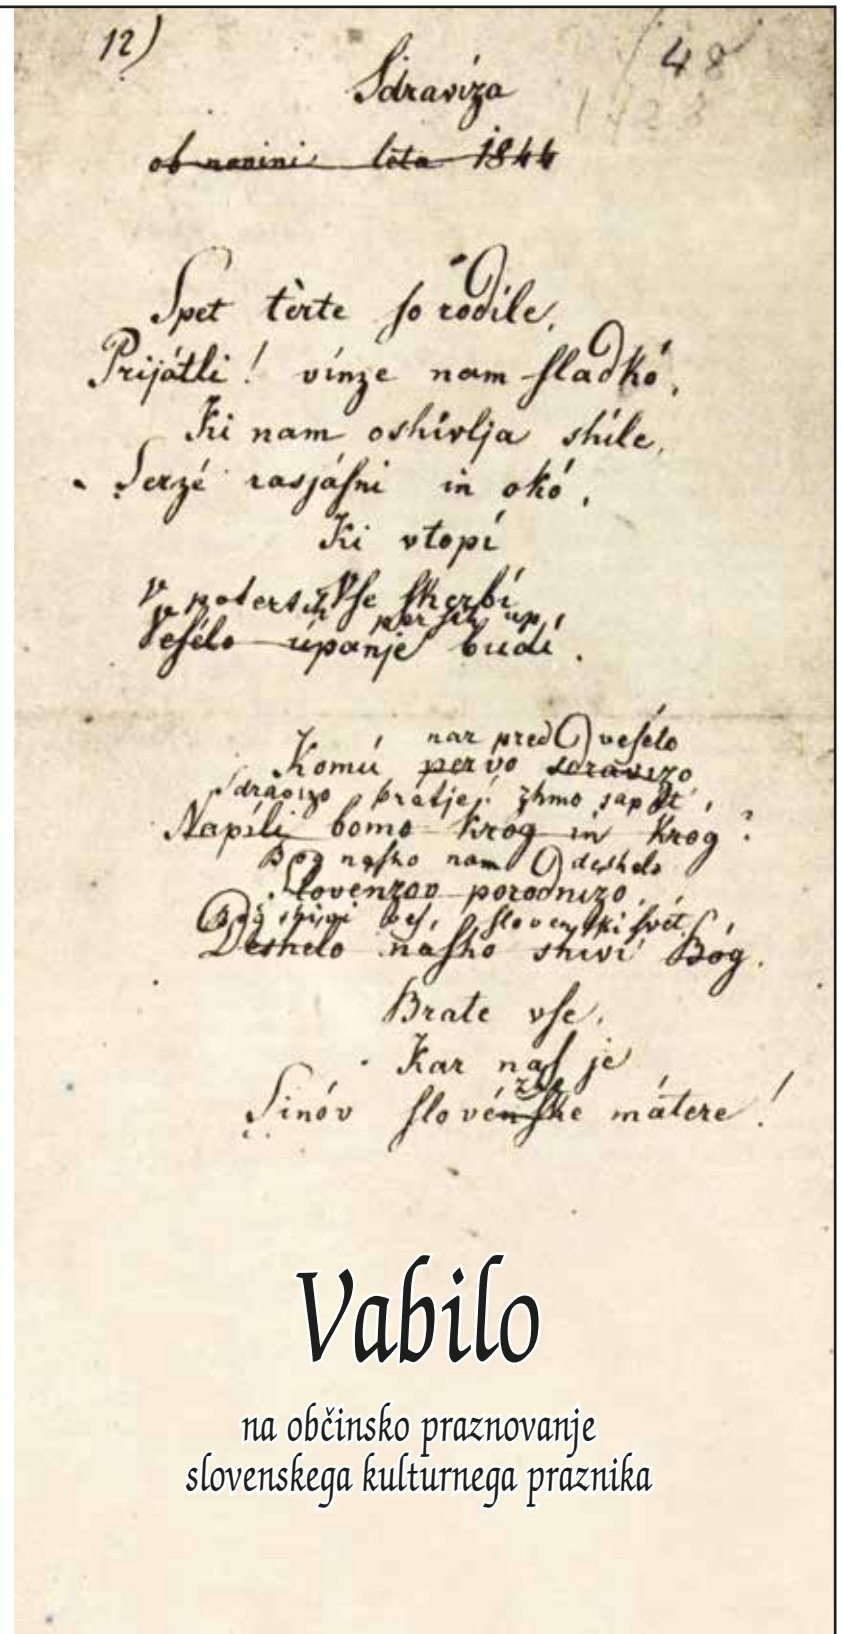 12)
48
Sdravíza
ob novini léta 1844
Spet tèrte ſo rodíle,
Prijátli! vínze nam ſladkó,
Ki nam oshívlja shíle,
Serzé rasjáſni in okó,
Ki vtopí
Vſe ſkerbí
v potertih perſih up
Veſélo úpanje budí.
nar pred veſélo
Komú pervo sdravizo
Sdravizo bratje! zhmo sapét',
Napíli bomo króg in króg?
Bog naſho nam deshelo
Slovenzov porodnizo,
Bog shivi veſ ſlovenſki ſvét,
Deshelo naſho shivi Bóg.
Brate vſe,
Kar naſ je
zhe
Sinóv ſlovénſke mátere!
Vabilo
na občinsko praznovanje
slovenskega kulturnega praznika